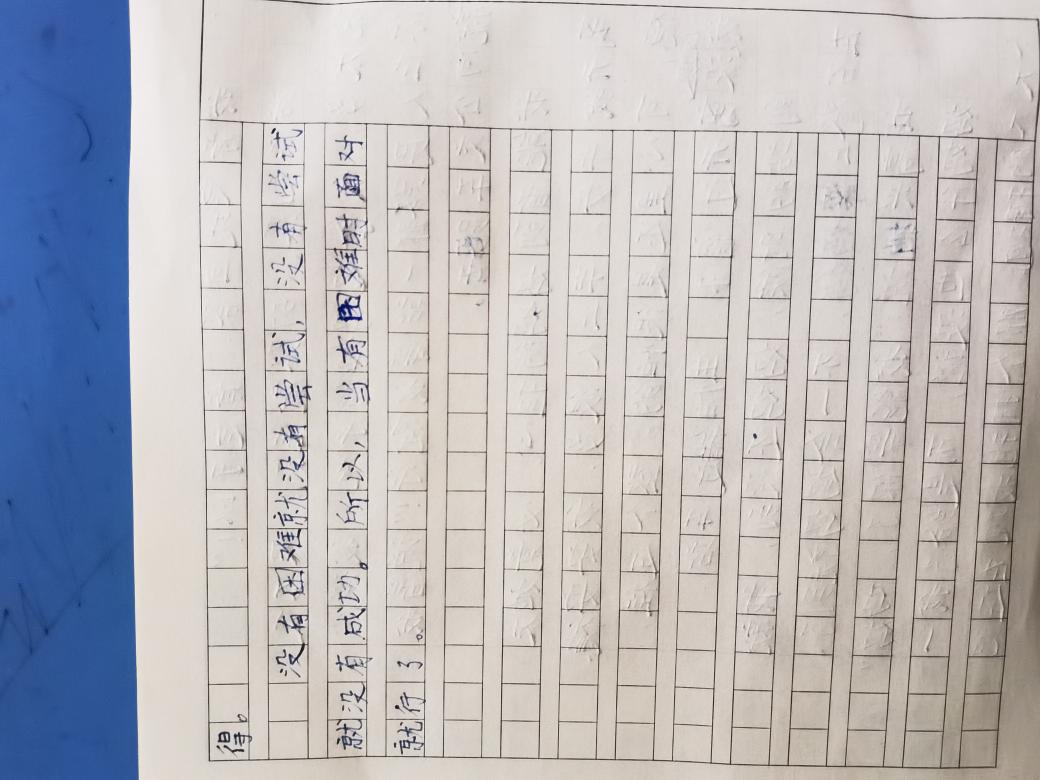 得。
没有困难就没有尝试，没有尝试
就没有成功。所以，当有困难时面对
就行了。